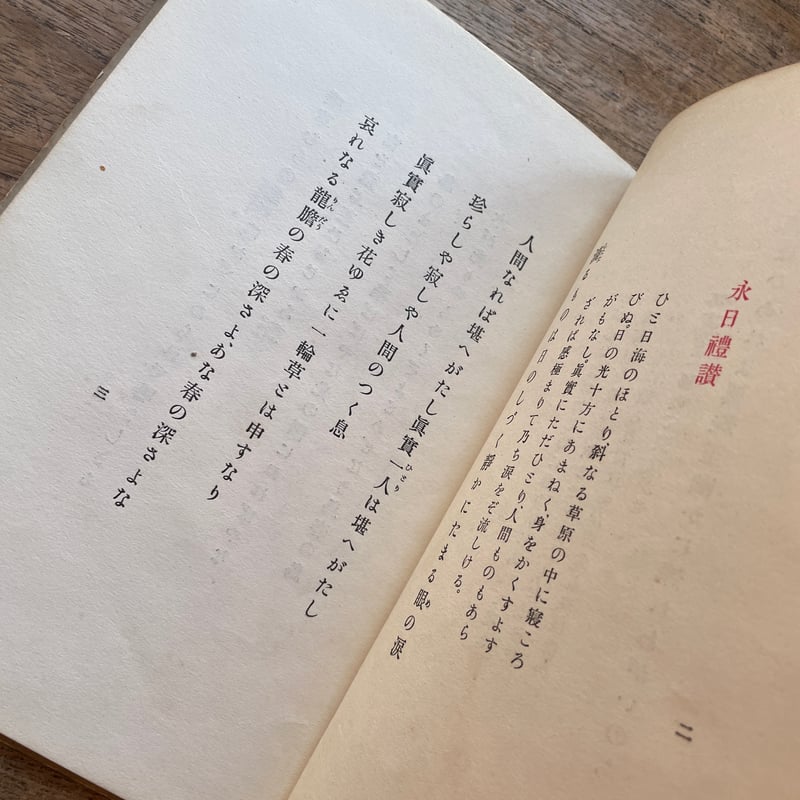 永日禮讚
ひと日海のほとり、斜なる草原の中に寢ころ
びぬ。日の光十方にあまねく、身をかくすよす
がもなし。眞實にただひとり、人間ものもあら
ざれば感極まりて乃ち涙をぞ流しける。
滴るものは日のしづく靜かにたまる眼の涙
二
人間なれば堪へがたし眞實一人は堪へがたし
珍らしや寂しや人間のつく息
眞實寂しき花ゆゑに一輪草とは申すなり
哀れなる龍膽の春の深さよ、あな春の深さよな
三